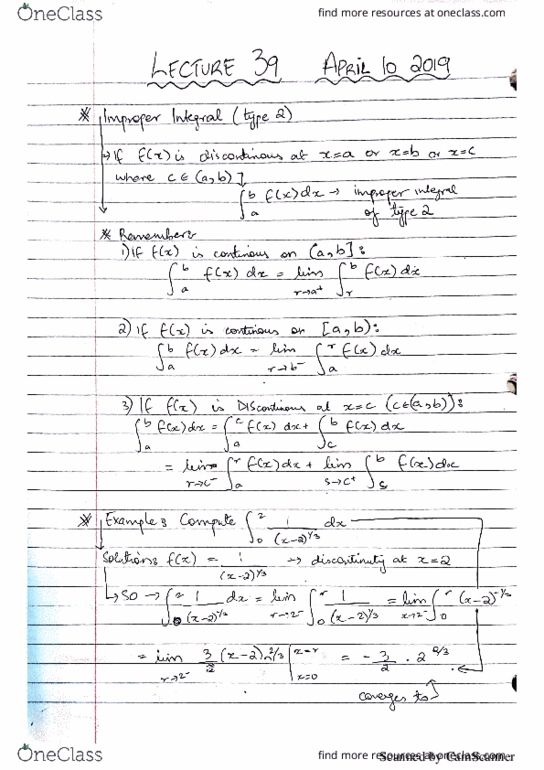 OneClass
find more resources at oneclass.com
LECTURE 39 APRIL 10 2019
* Improper Integral (type 2)
→ If f(x) is discontinous at x=a or x=b or x=c
where c∈(a,b)]
∫_a^b f(x)dx → improper integral
of type 2
* Remember:
1) If f(x) is continous on (a,b]:
∫_a^b f(x) dx = lim_{r→a⁺} ∫_r^b f(x)dx
2) If f(x) is continous on [a,b):
∫_a^b f(x)dx = lim_{r→b⁻} ∫_a^r f(x)dx
3) If f(x) is Discontinous at x=c (c∈(a,b)):
∫_a^b f(x)dx = ∫_a^c f(x) dx + ∫_c^b f(x) dx
= lim_{r→c⁻} ∫_a^r f(x)dx + lim_{s→c⁺} ∫_s^b f(x)dx
* Example: Compute ∫_0^2 1/(x-2)^{1/3} dx
Solution: f(x) = 1/(x-2)^{1/3} → discontinuity at x=2
↳ SO → ∫_0^2 1/(x-2)^{1/3} dx = lim_{r→2⁻} ∫_0^r 1/(x-2)^{1/3} = lim_{x→2⁻} ∫_0^r (x-2)^{-1/3}
= lim_{r→2⁻} 3/2 (x-2)^{2/3} |_{x=0}^{x=r} = -3/2 · 2^{2/3}
converges to
OneClass
find more resources at oneclass.com
Scanned by CamScanner